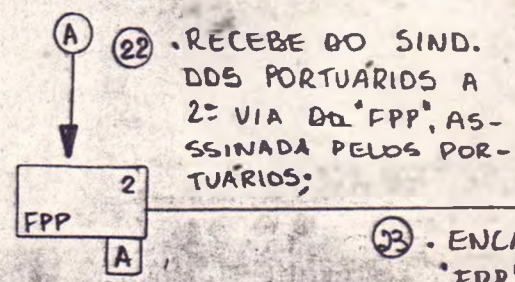 A
22 . RECEBE DO SIND.
DOS PORTUÁRIOS A
2ª VIA DA "FPP", AS-
SSINADA PELOS POR-
TUÁRIOS;
2
FPP
A
23 . ENCA
"FPP"